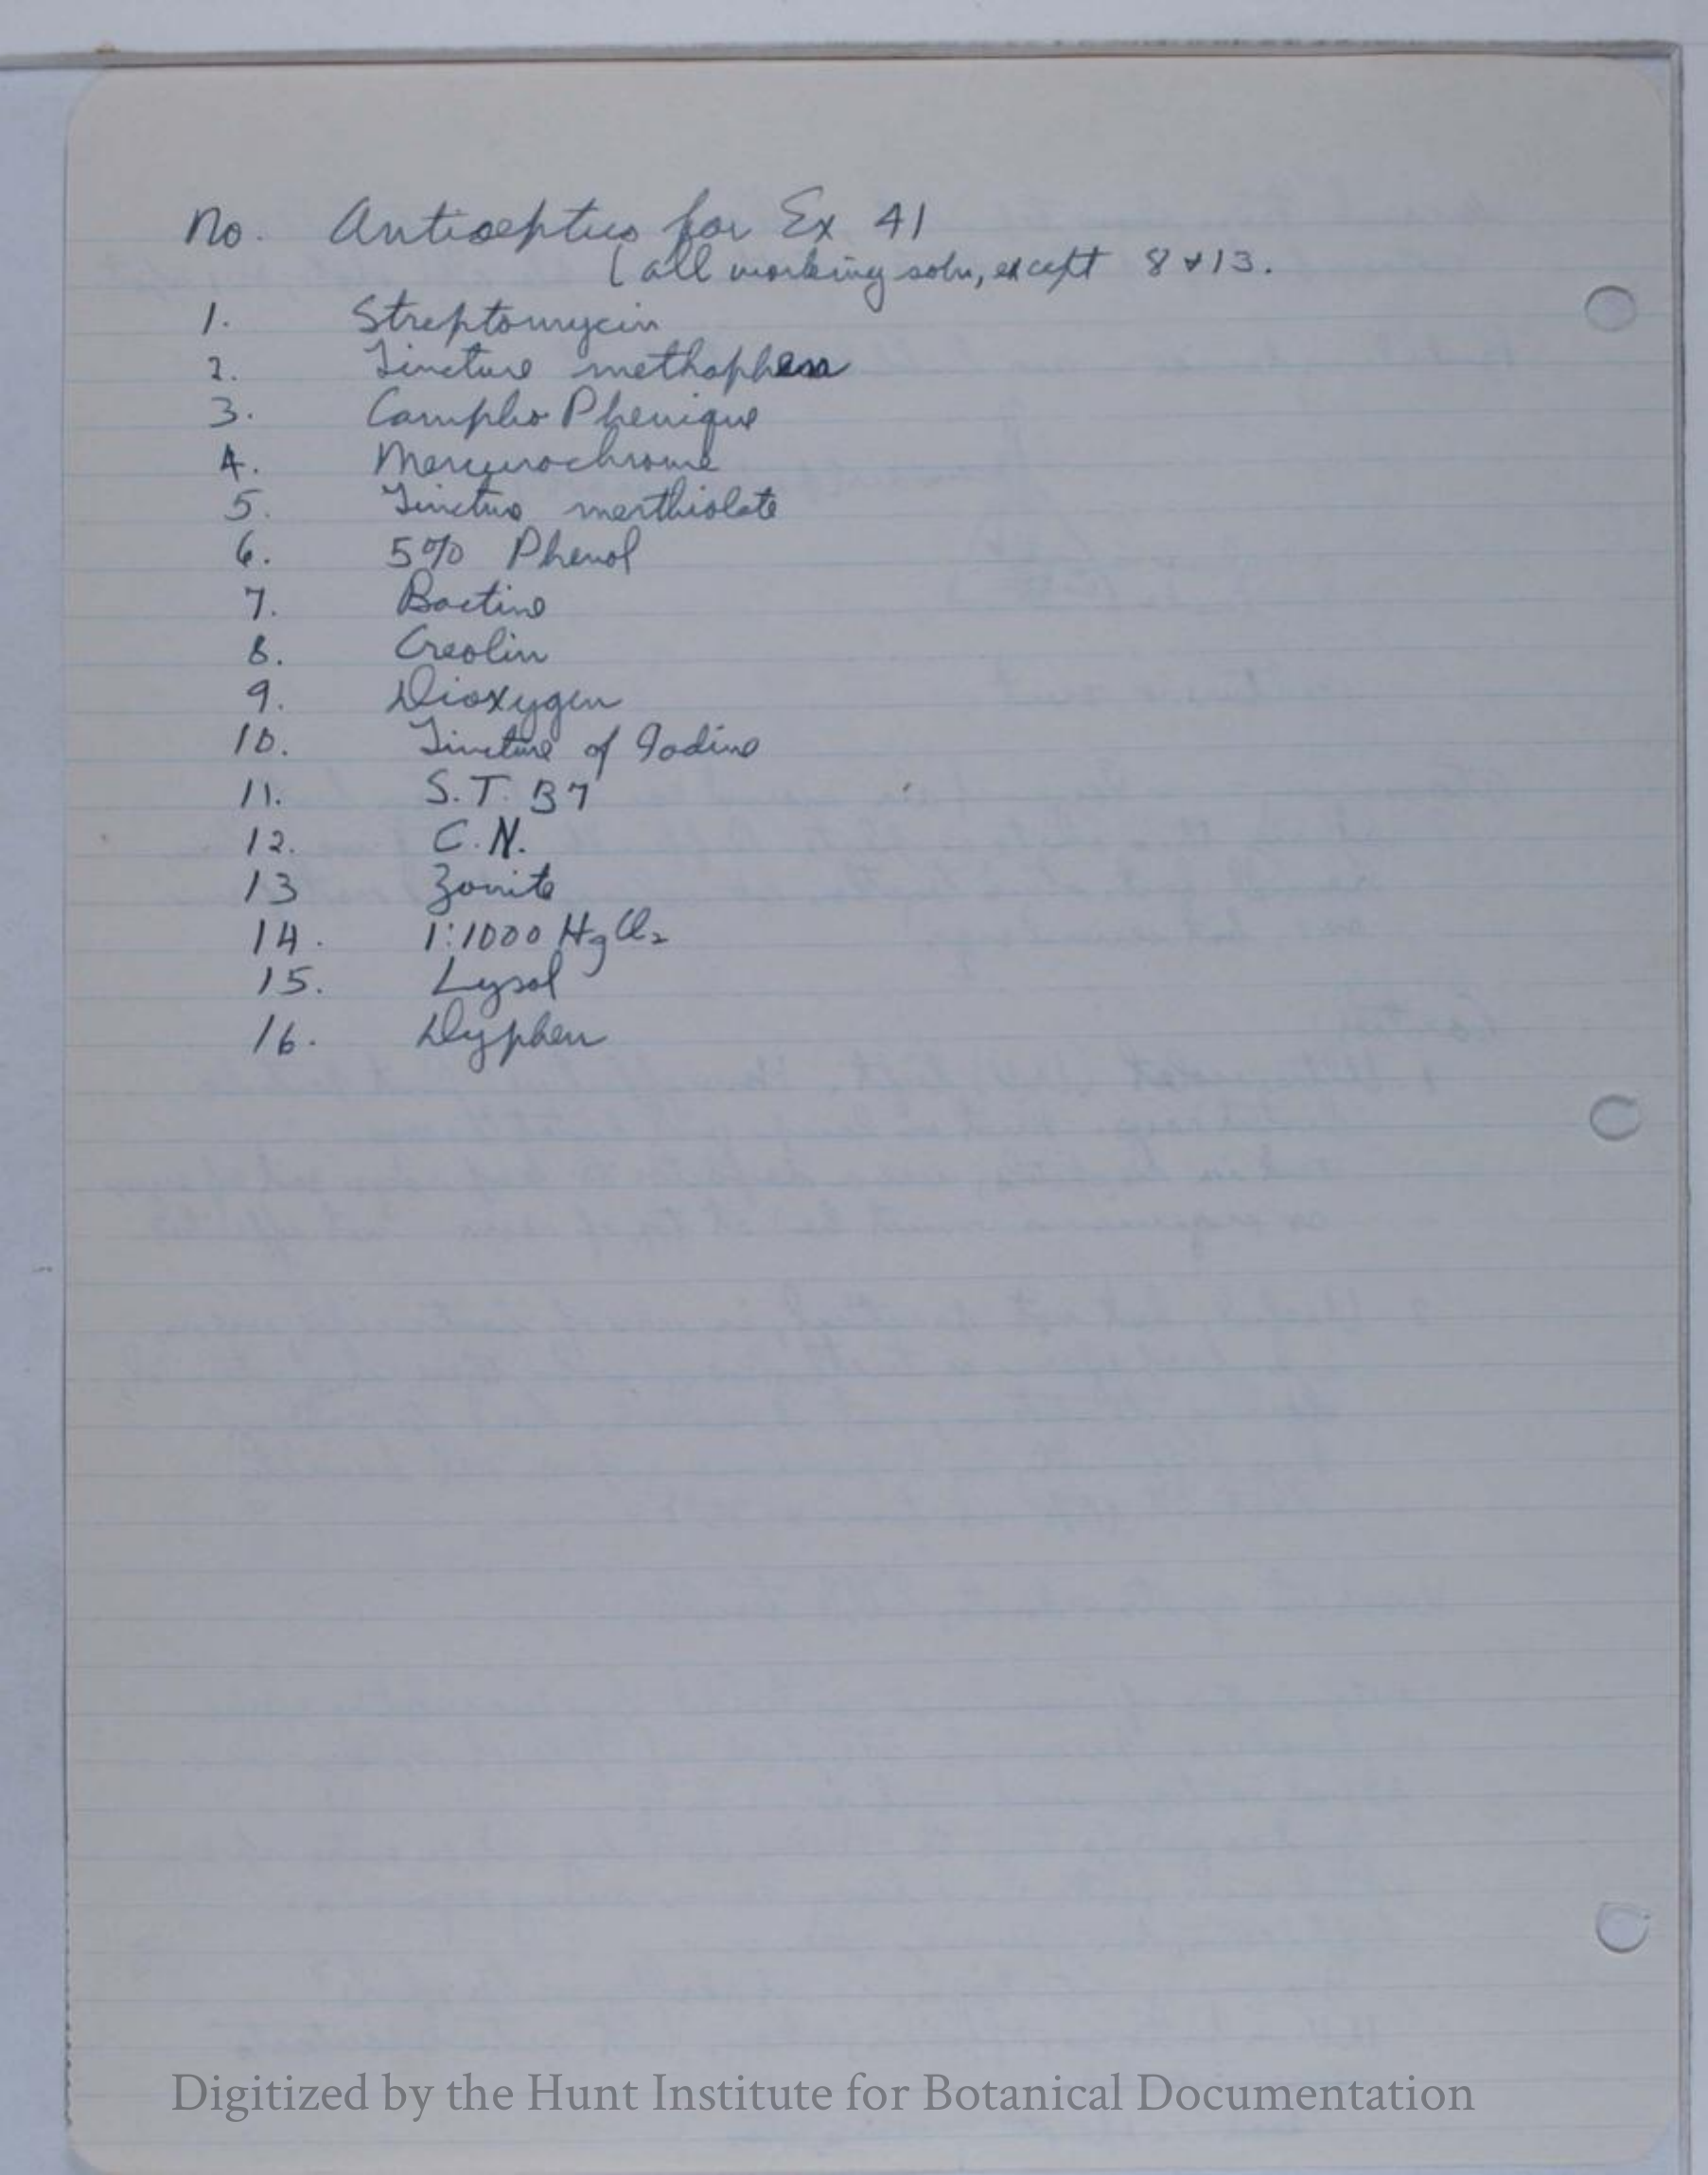 No. Antiseptics for Ex 41
(all working soln, except 8 & 13.
1. Streptomycin
2. Tincture methaphen
3. Campho Phenique
4. Mercurochrome
5. Tincture merthiolate
6. 5% Phenol
7. Bactine
8. Creolin
9. Dioxygen
10. Tincture of Iodine
11. S.T. 37
12. C.N.
13 Zonite
14. 1:1000 HgCl₂
15. Lysol
16. Dyphen
Digitized by the Hunt Institute for Botanical Documentation